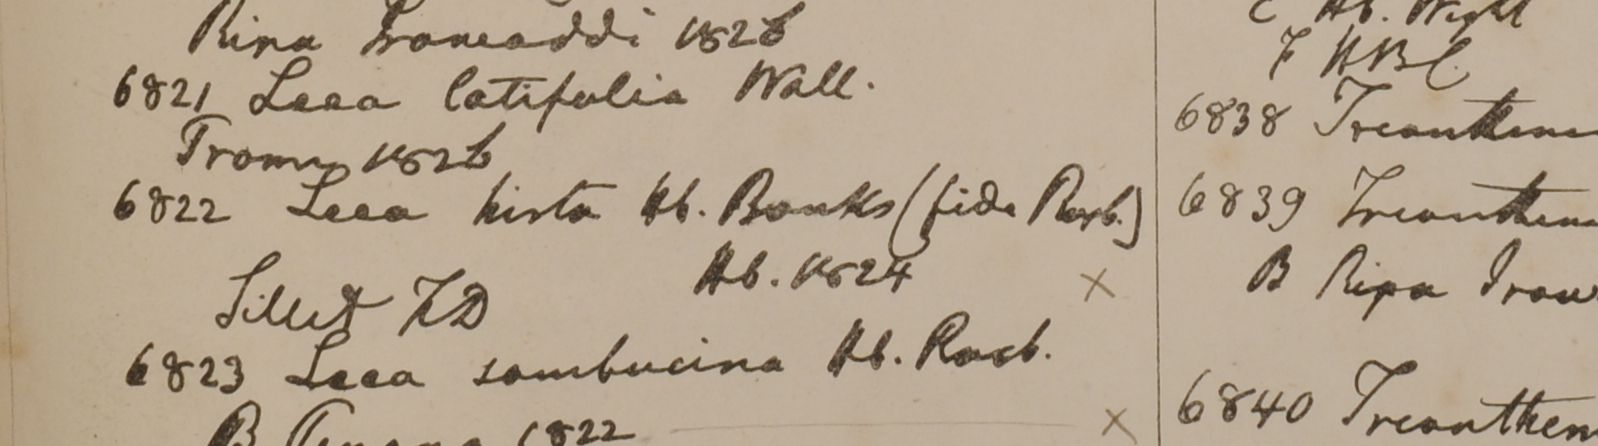 Ripa Irawaddi 1826
6821 Leea latifolia Wall.
Prome 1826
6822 Leea hirta Hb. Banks (fide Roxb.)
Hb. 1824 ×
Sillet FD
6823 Leea sambucina Hb. Roxb.
×
B 1822
C Hb. Wight
F HBC.
6838 Trianthem
6839 Trianthem
B Ripa Iraw
6840 Trianthem